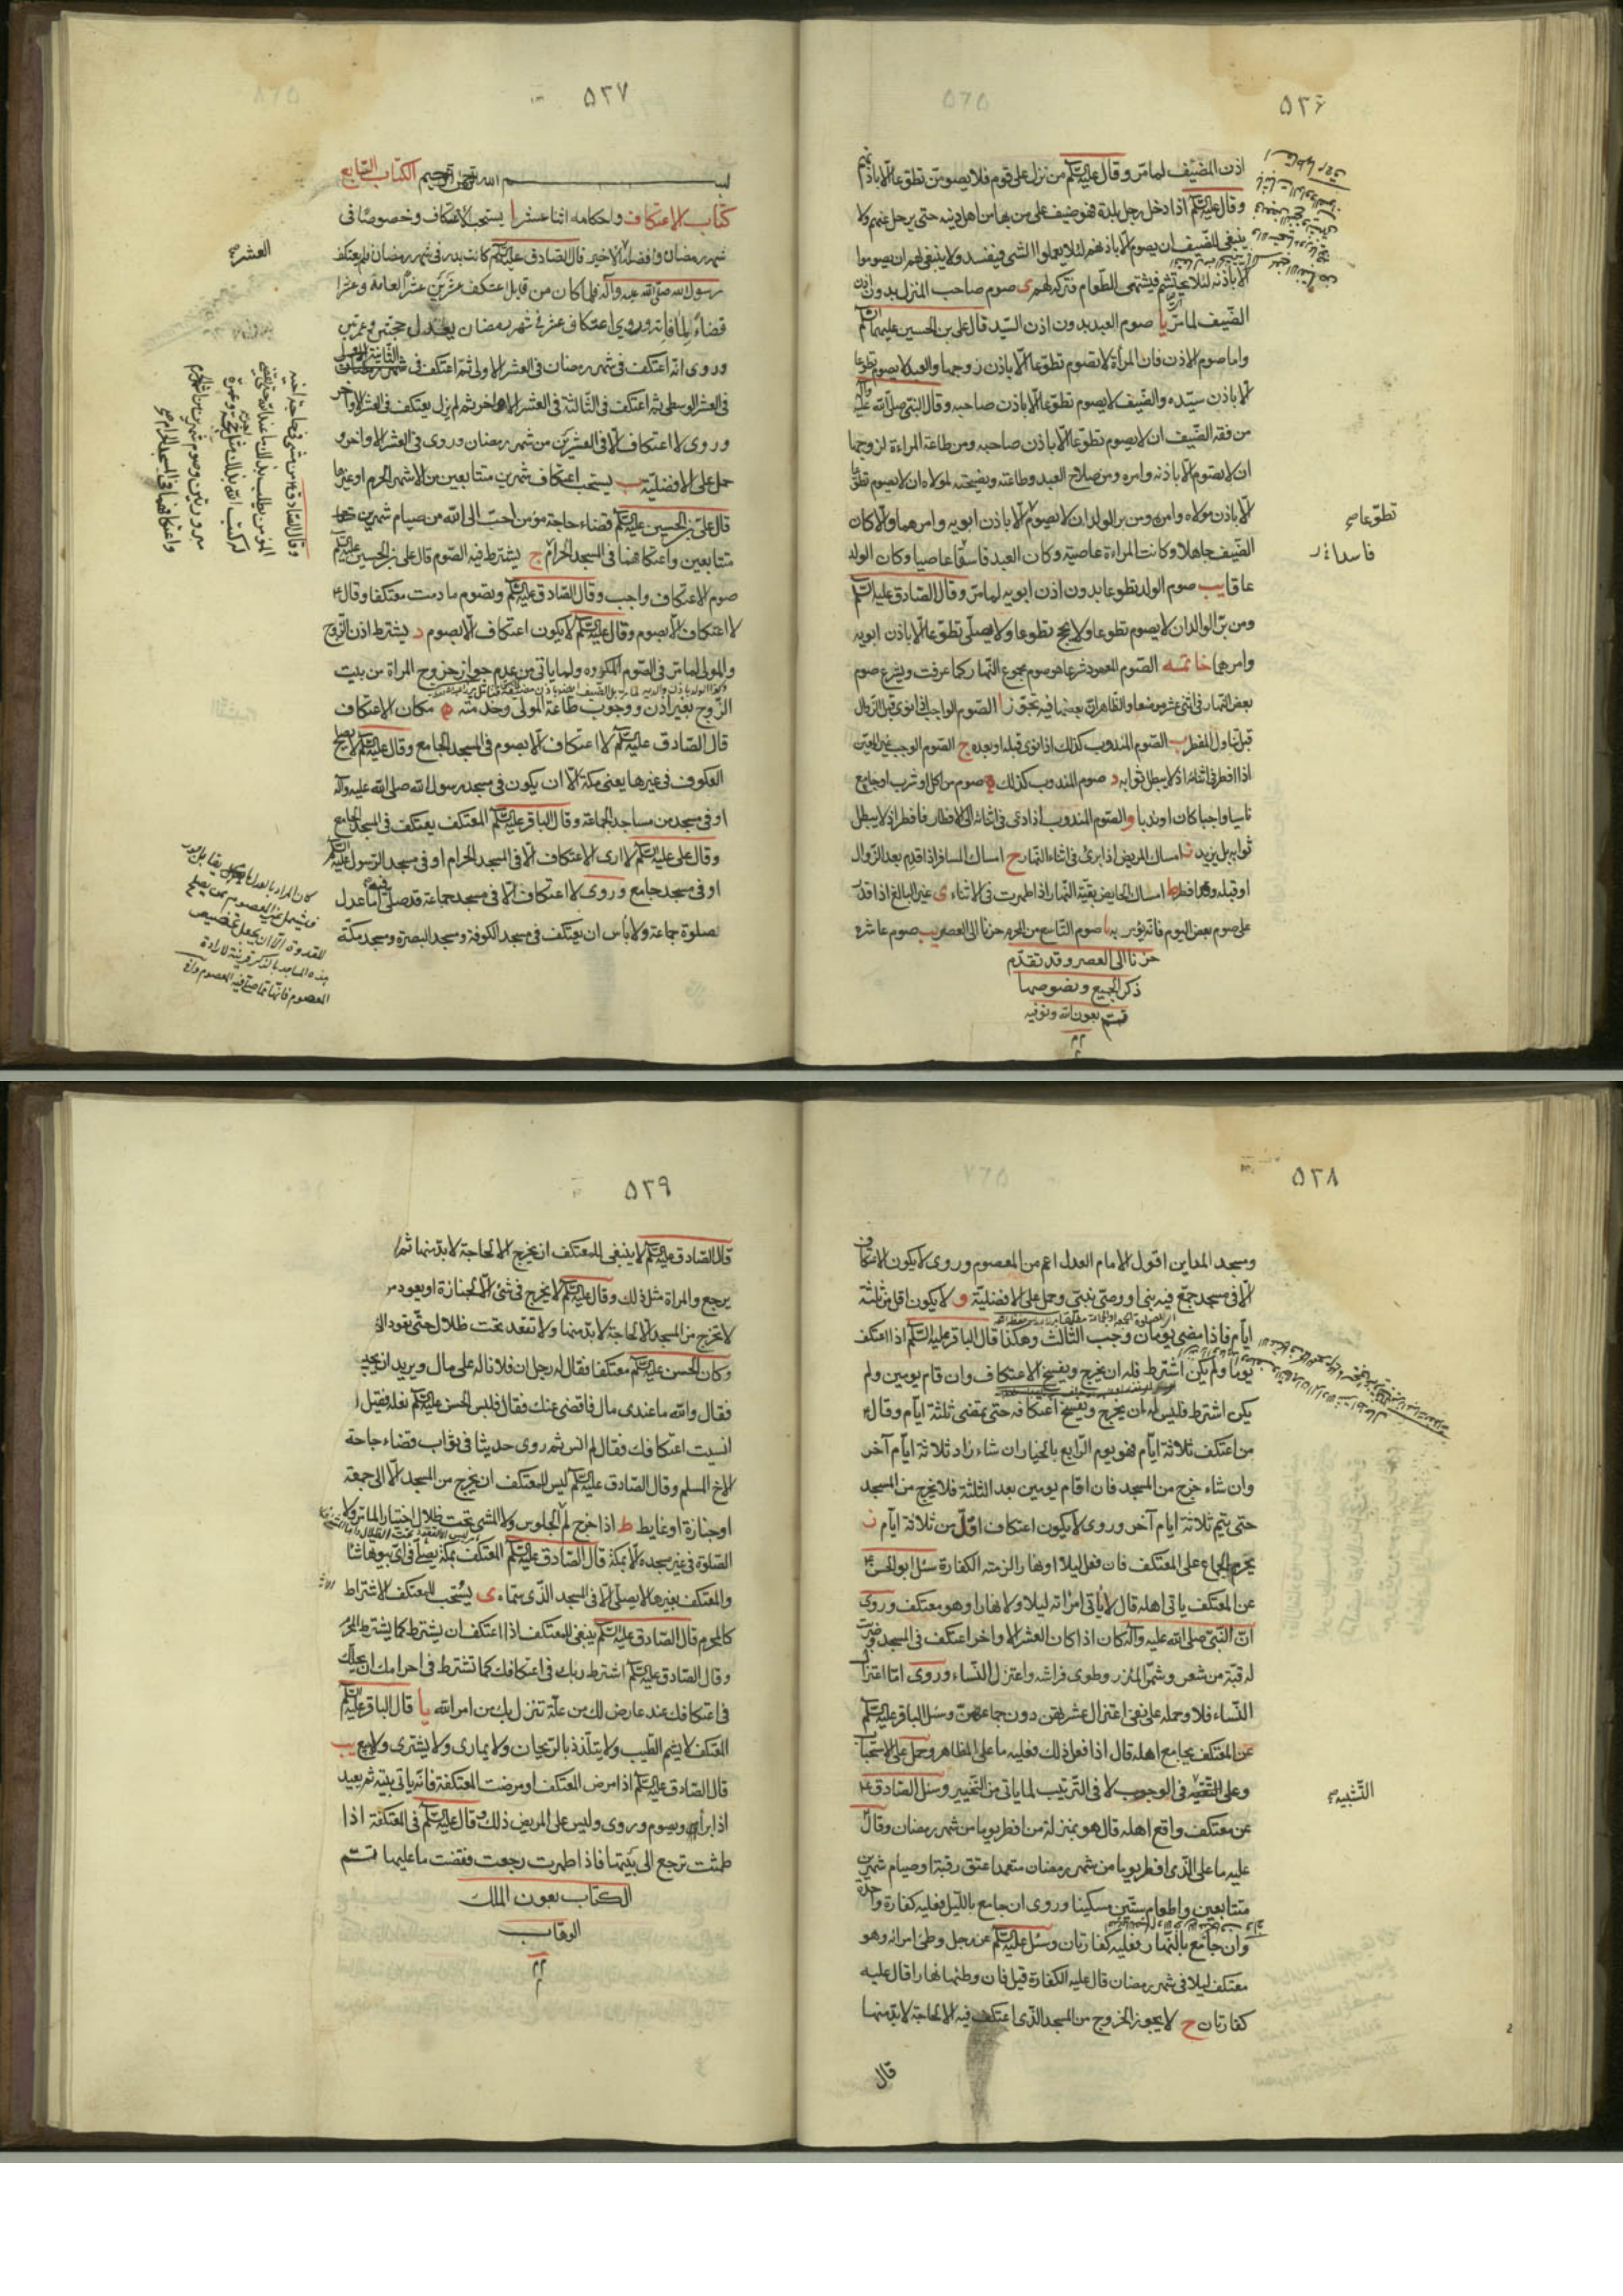 ٥٢٦
اذن المضيف لما مر وقال عليه السلام من نزل على قوم فلا يصومن تطوعا الا باذنهم
وقال عليه السلام اذا دخل رجل بلدة فهو ضيف على من بها من اهل دينه حتى يرحل عنهم ولا
ينبغى للضيف ان يصوم الا باذنهم لئلا يعملوا الشئ فيفسد ولا ينبغى لهم ان يصوموا
الا باذنه لئلا يحتشم فيشتهى الطعام فتركه لهم ى صوم صاحب المنزل بدون اذن
الضيف لما مر يا صوم العبد بدون اذن السيد قال على بن الحسين عليهما السلام
واما صوم الاذن فان المرأة لا تصوم تطوعا الا باذن زوجها والعبد لا يصوم تطوعا
الا باذن سيده والضيف لا يصوم تطوعا الا باذن صاحبه وقال النبى صلى الله عليه وآله
من فقه الضيف ان لا يصوم تطوعا الا باذن صاحبه ومن طاعة المراءة لزوجها
ان لا تصوم الا باذنه وامره ومن صلاح العبد وطاعته ونصيحته لمولاه ان لا يصوم تطوعا
الا باذن مولاه وامره ومن بر الولد ان لا يصوم الا باذن ابويه وامرهما والا كان
الضيف جاهلا وكانت المراءة عاصية وكان العبد فاسقا عاصيا وكان الولد
عاقا يب صوم الولد تطوعا بدون اذن ابويه لما مر وقال الصادق عليه السلام
ومن بر الوالد ان لا يصوم تطوعا ولا يحج تطوعا ولا يصلى تطوعا الا باذن ابويه
وامرهما خاتمة الصوم المعهود شرعا هو صوم مجموع النهار كما عرفت ويشرع صوم
بعض النهار فى اثنى عشر موضعا والظاهر ان بعضها فيه تجوز ا الصوم الواجب اذا نوى قبل الزوال
قبل تناول المفطر ب الصوم المندوب كذلك اذا نوى قبله او بعده ج الصوم الواجب غير المعين
اذا افطر فى اثنائه اذ لا يبطل ثوابه د صوم المندوب كذلك ه صوم من اكل او شرب او جامع
ناسيا واجبا كان او ندبا و الصوم المندوب اذا دعى فى اثنائه الى الافطار فافطر اذ لا يبطل
ثوابه بل يزيد ز امساك المريض اذا برئ فى اثناء النهار ح امساك المسافر اذا قدم بعد الزوال
او قبله وقد افطر ط امساك الحايض بقية النهار اذا طهرت فى الاثناء ى غير البالغ اذا قدر
على صوم بعض اليوم فانه يؤمر به يا صوم التاسع من المحرم حزنا الى العصر يب صوم عاشره
حزنا الى العصر وقد تقدم
ذكر الجميع ونصوصها
تم بعون الله وتوفيقه
تطوعا صح
فاسدا
٥٢٧
بسم الله الرحمن الرحيم الكتاب السابع
كتاب الاعتكاف واحكامه اثنا عشر ا يستحب الاعتكاف وخصوصا فى
شهر رمضان وافضله الاخير قال الصادق عليه السلام كانت بدر فى شهر رمضان فلم يعتكف
رسول الله صلى الله عليه وآله فلما كان من قابل اعتكف عشرين عشرا لعامه وعشرا
قضاء لما فاته وروى اعتكاف عشر فى شهر رمضان يعدل حجتين وعمرتين
وروى انه اعتكف فى شهر رمضان فى العشر الاولى ثم اعتكف فى الثانية
فى العشر الوسطى ثم اعتكف فى الثالثة فى العشر الاواخر ثم لم يزل يعتكف فى العشر الاواخر
وروى لا اعتكاف الا فى العشرين من شهر رمضان وروى فى العشر الاواخر و
حمل على الافضلية ب يستحب اعتكاف شهرين متتابعين من الاشهر الحرم او غيرها
قال على بن الحسين عليه السلام قضاء حاجة مؤمن احب الى الله من صيام شهرين
متتابعين واعتكافهما فى المسجد الحرام ج يشترط فيه الصوم قال على بن الحسين عليه السلام
صوم الاعتكاف واجب وقال الصادق عليه السلام وتصوم ما دمت معتكفا وقال ع
لا اعتكاف الا بصوم وقال عليه السلام لا يكون اعتكاف الا بصوم د يشترط اذن الزوج
والمولى لما مر فى الصوم المكروه ولما ياتى من عدم جواز خروج المراة من بيت
الزوج بغير اذن ووجوب طاعة المولى وخدمته ه مكان الاعتكاف
قال الصادق عليه السلام لا اعتكاف الا بصوم فى المسجد الجامع وقال عليه السلام لا يصلح
العكوف فى غيرها يعنى مكة الا ان يكون فى مسجد رسول الله صلى الله عليه وآله
او فى مسجد من مساجد الجماعة وقال الباقر عليه السلام المعتكف يعتكف فى المسجد الجامع
وقال على عليه السلام لا ارى الاعتكاف الا فى المسجد الحرام او فى مسجد الرسول عليه السلام
او فى مسجد جامع وروى لا اعتكاف الا فى مسجد جماعة قد صلى فيه امام عدل
بصلوة جماعة ولا باس ان يعتكف فى مسجد الكوفة ومسجد البصرة ومسجد مكة
العشر
وقال الصادق ع من مشى فى حاجة اخيه
المؤمن يطلب بذلك ما عند الله حتى تقضى
له كتب الله بذلك مثل اجر حجة وعمرة
مبرورتين وصوم شهرين من اشهر الحرم
واعتكافهما فى المسجد الحرام صح
٥٢٨
ومسجد المداين اقول الامام العدل اعم من المعصوم وروى لا يكون الاعتكاف
الا فى مسجد جمع فيه نبى او وصى نبى وحمل على الافضلية و لا يكون اقل من ثلثة
ايام فاذا مضى يومان وجب الثالث وهكذا قال الباقر عليه السلام اذا اعتكف
يوما ولم يكن اشترط فله ان يخرج ويفسخ الاعتكاف وان قام يومين ولم
يكن اشترط فليس له ان يخرج ويفسخ اعتكافه حتى يمضى ثلثة ايام وقال ع
من اعتكف ثلاثة ايام فهو يوم الرابع بالخيار ان شاء زاد ثلاثة ايام آخر
وان شاء خرج من المسجد فان اقام يومين بعد الثلثة فلا يخرج من المسجد
حتى يتم ثلاثة ايام آخر وروى لا يكون اعتكاف اقل من ثلاثة ايام ز
يحرم الجماع على المعتكف فان فعل ليلا او نهارا لزمته الكفارة سئل ابو الحسن ع
عن المعتكف ياتى اهله قال لا ياتى امراته ليلا ولا نهارا وهو معتكف وروى
ان النبى صلى الله عليه وآله كان اذا كان العشر الاواخر اعتكف فى المسجد وضربت
له قبة من شعر وشمر المئزر وطوى فراشه واعتزل النساء وروى اما اعتزال
النساء فلا وحمله على نفى اعتزال عشرتهن دون جماعهن وسئل الباقر عليه السلام
عن المعتكف يجامع اهله قال اذا فعل ذلك فعليه ما على المظاهر وحمل على الاستحباب
وعلى التقية فى الوجوب لا فى الترتيب لما ياتى من التخيير وسئل الصادق ع
عن معتكف واقع اهله قال هو بمنزلة من افطر يوما من شهر رمضان وقال
عليه ما على الذى افطر يوما من شهر رمضان متعمدا عتق رقبة او صيام شهرين
متتابعين واطعام ستين مسكينا وروى ان جامع بالليل فعليه كفارة واحدة
وان جامع بالنهار فعليه كفارتان وسئل عليه السلام عن رجل وطئ امراته وهو
معتكف ليلا فى شهر رمضان قال عليه الكفارة قيل فان وطئها نهارا قال عليه
كفارتان ح لا يجوز الخروج من المسجد الذى اعتكف فيه الا لحاجة لا بد منها
قال
التشبيه
٥٢٩
قال الصادق عليه السلام لا ينبغى للمعتكف ان يخرج الا لحاجة لا بد منها ثم لا
يرجع والمراة مثل ذلك وقال عليه السلام لا يخرج فى شئ الا لجنازة او يعود مر
لا تخرج من المسجد الا لحاجة لا بد منها ولا تقعد تحت ظلال حتى تعود الى
وكان الحسن عليه السلام معتكفا فقال له رجل ان فلانا له على مال ويريد ان يحبس
فقال والله ما عندى مال فاقضى عنك فقال فلبس الحسن عليه السلام نعله فقيل ا
انسيت اعتكافك فقال لم انس ثم روى حديثا فى ثواب قضاء حاجة
الاخ المسلم وقال الصادق عليه السلام ليس للمعتكف ان يخرج من المسجد الا الى جمعة
او جنازة او غايط ط اذا خرج لم الجلوس ولا المشى تحت ظلال اختيارا لما مر ولا
الصلوة فى غير مسجده الا بمكة قال الصادق عليه السلام المعتكف بمكة يصلى فى اى بيوتها شا
والمعتكف بغيرها لا يصلى الا فى المسجد الذى سماه ى يستحب للمعتكف الاشتراط
كالمحرم قال الصادق عليه السلام ينبغى للمعتكف اذا اعتكف ان يشترط كما يشترط المحرم
وقال الصادق عليه السلام اشترط ربك فى اعتكافك كما تشترط فى احرامك ان يحلك
فى اعتكافك عند عارض لك من علة تنزل بك من امر الله يا قال الباقر عليه السلام
المعتكف لا يشم الطيب ولا يتلذذ بالريحان ولا يمارى ولا يشترى ولا يبيع يب
قال الصادق عليه السلام اذا مرض المعتكف او مرضت المعتكفة فانه ياتى بيته ثم يعيد
اذا برأ ويصوم وروى وليس على المريض ذلك وقال عليه السلام فى المعتكفة اذا
طمثت ترجع الى بيتها فاذا طهرت رجعت فقضت ما عليها تم
الكتاب بعون الملك
الوهاب